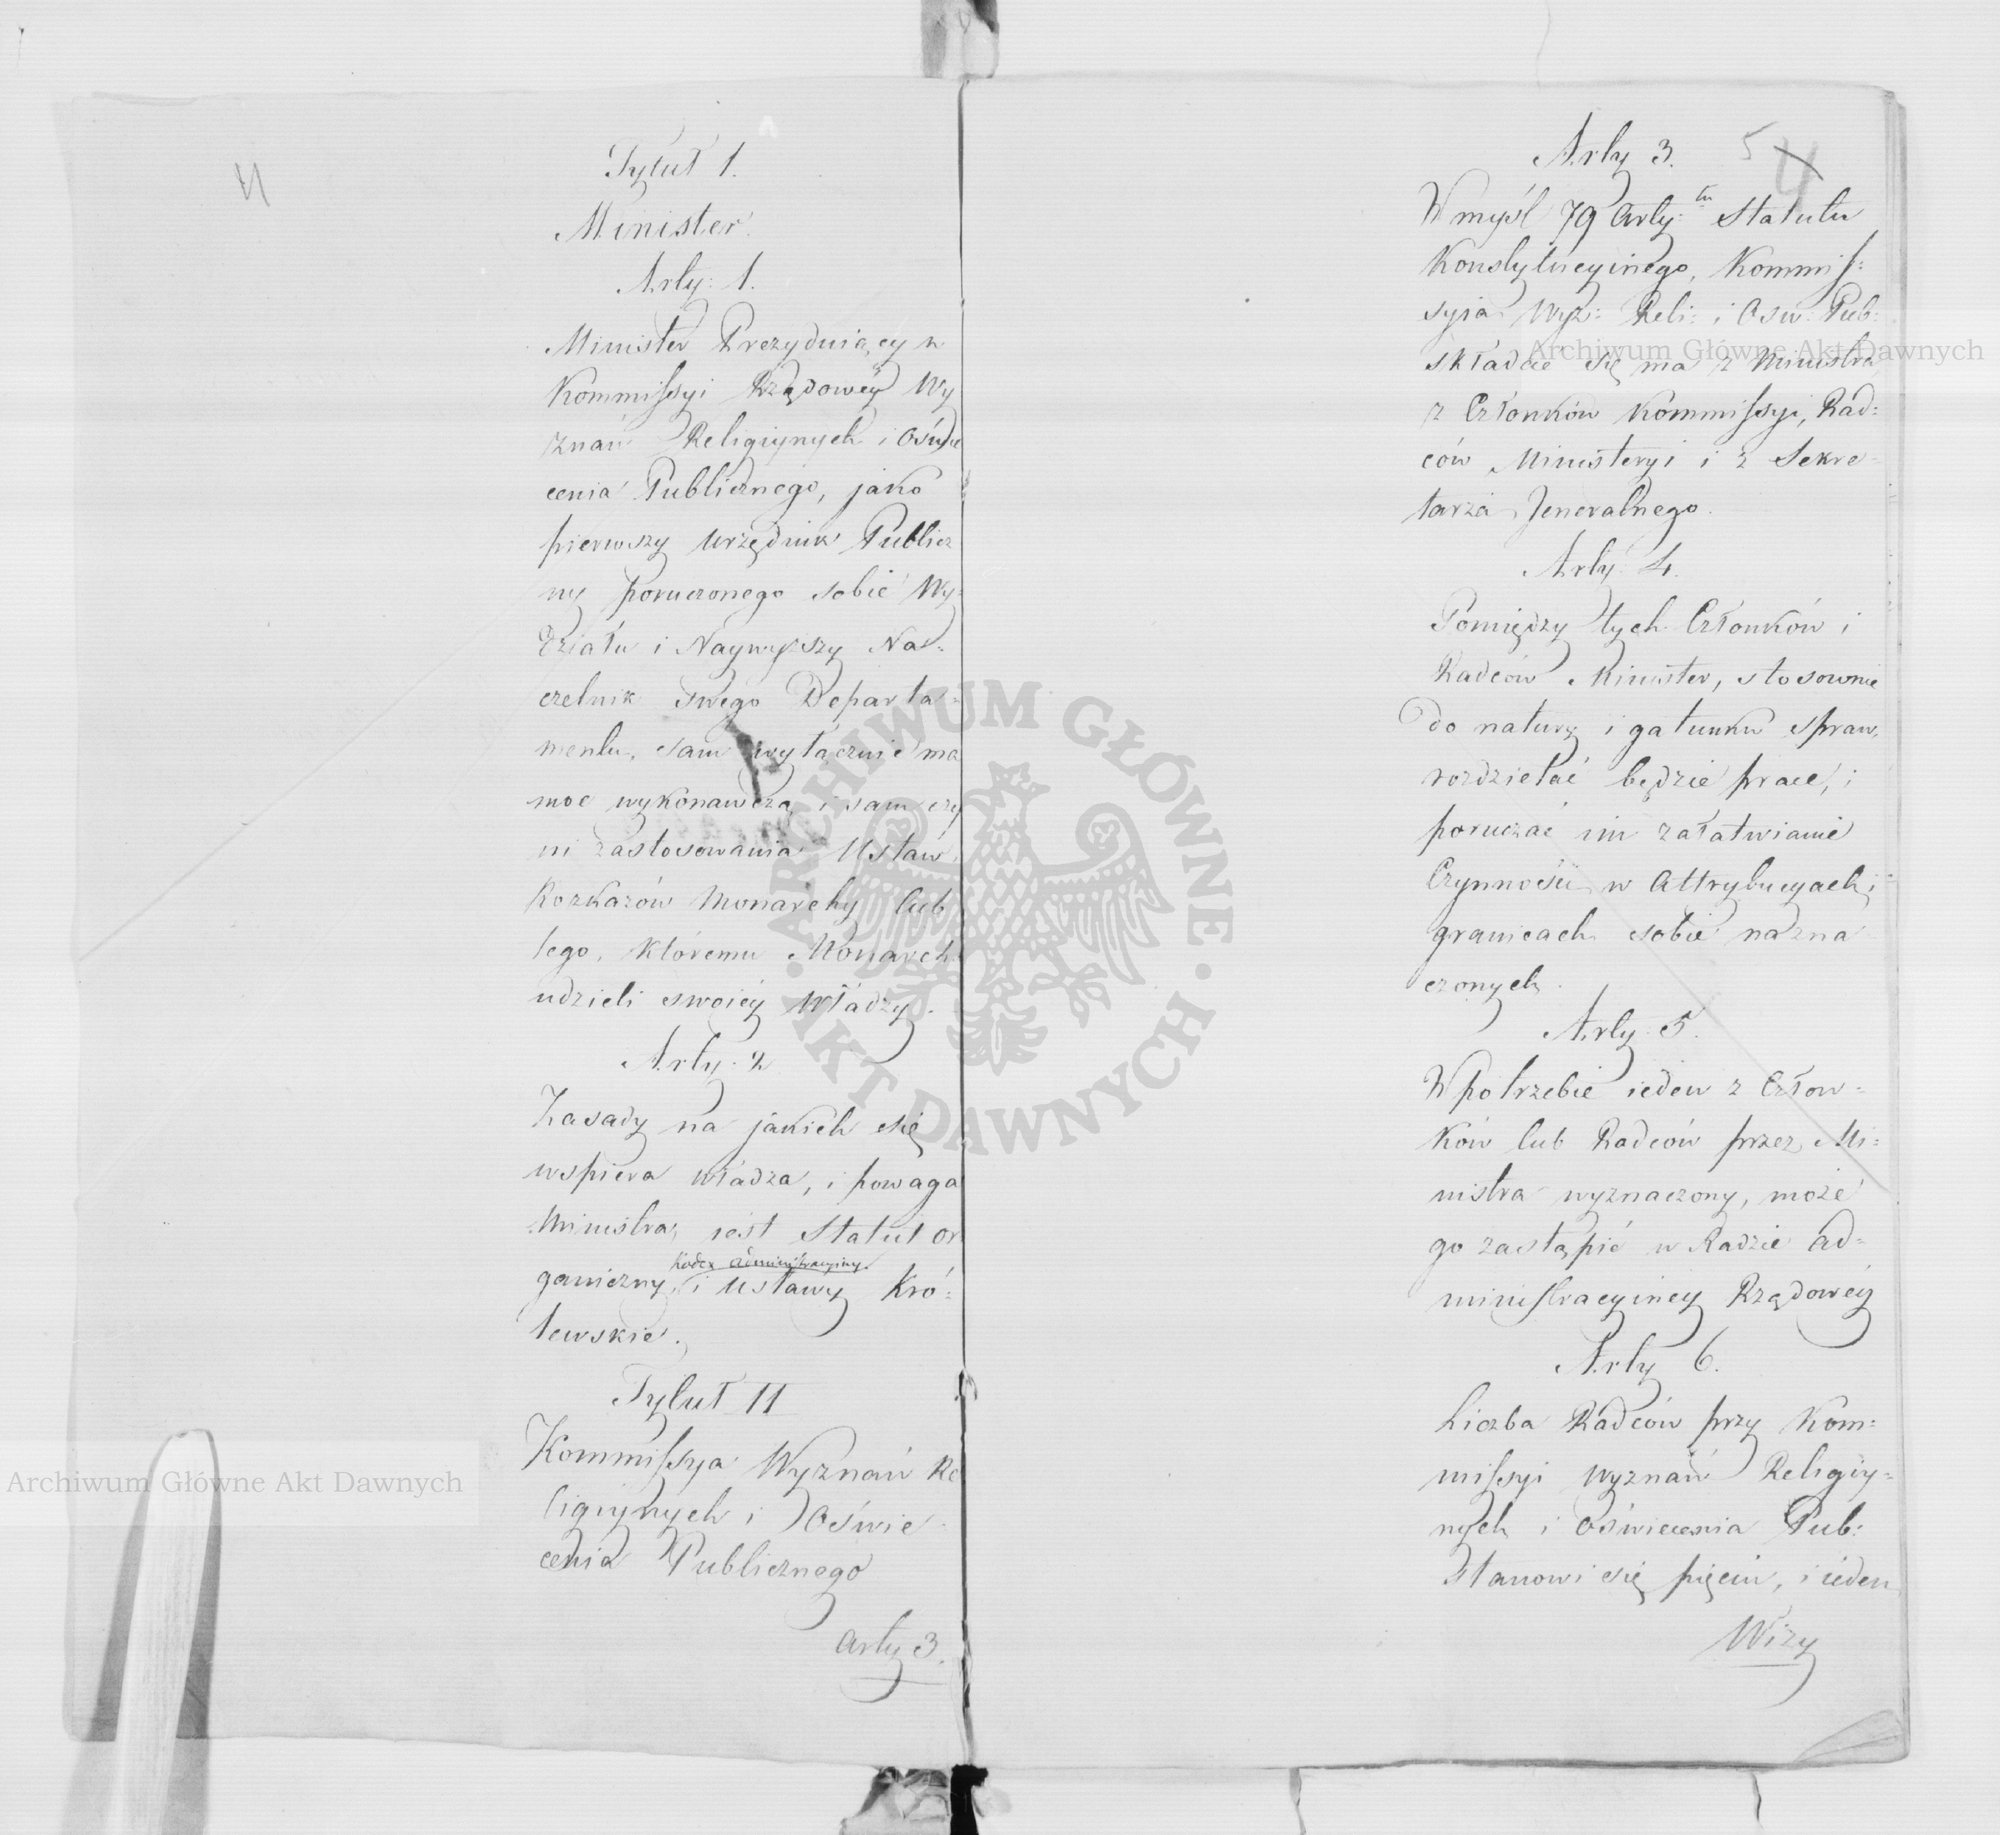 4
Tytuł 1.
Minister.
Arty: 1.
Minister Prezyduiący w
Kommissyi Rządowéy Wy
znań Religiynych i Oświe
cenia Publicznego, jako
pierwszy urzędnik Publicz
ny poruczonego sobie Wy=
działu i Naywyższy Na=
czelnik swego Departa=
mentu, sam wyłącznie ma
moc wykonawczą i sam czy
ni zastosowania Ustaw,
Rozkazów Monarchy lub
tego, któremu Monarcha
udzieli swoiéy Władzy.
Arty: 2
Zasady na jakich się
wspiera władza, i powaga
Ministra, iest Statut or
Kodex administracyiny
ganiczny, i ustawy Kró=
lewskie.
Tytuł II
Kommissya Wyznań Re
ligiynych i Oświe=
cenia Publicznego
Arty 3.
Arty 3.
5
4
W myśl 79 Arty: tu Statutu
Konstytucyinego, Kommis=
syia Wyz: Reli: i Osw: Pub:
składać się ma z Ministra
z Członków Kommissyi, Rad=
ców Ministeryi i z Sekre=
tarza Jeneralnego.
Arty 4.
Pomiędzy tych Członków i
Radców Minister, stosownie
do natury i gatunku spraw,
rozdzielać będzie prace, i
poruczać im załatwianie
Czynności w attrybucyach i
granicach sobie nazna=
czonych.
Arty: 5.
W potrzebie ieden z Człon=
ków lub Radców przez Mi=
nistra wyznaczony, może
go zastąpić w Radzie ad=
ministracyiney Rządowéy
Arty 6.
Liczba Radców przy Kom=
missyi wyznań Religiy=
nych i Oświecenia Pub:
Stanowi się pięciu, i ieden
Wizy
Archiwum Główne Akt Dawnych
Archiwum Główne Akt Dawnych
ARCHIWUM GŁÓWNE · AKT DAWNYCH ·